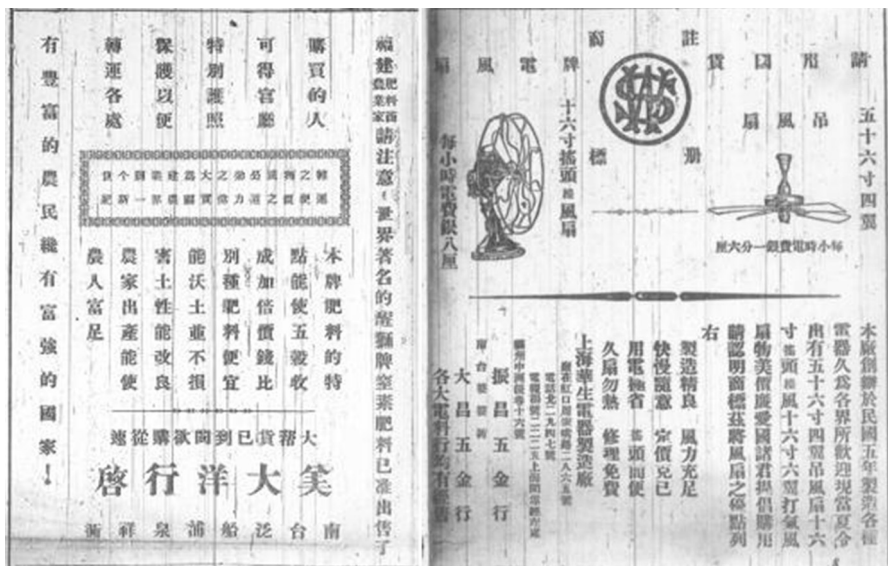 請用國貨
註册商標
牌電風扇
五十六寸四翼
吊風扇
每小時電費銀一分六厘
十六寸搖頭風扇
每小時電費銀八厘
本廠創辦於民國五年製造各種
電器久為各界所歡迎現當夏令
出有五十六寸四翼吊風扇十六
寸搖頭風扇十六寸六翼打氣風
扇物美價廉愛國諸君提倡購用
請認明商標茲將風扇之優點列
右
製造精良 風力充足
快慢隨意 定價克己
用電極省 搖頭而便
久扇勿熱 修理免費
上海華生電器製造廠
振昌五金行
大昌五金行
各大電料行均有
福建肥料商農業家請注意！世界著名的醒獅牌窒素肥料已准出售了
購買的人
可得官廳
特別護照
保護以便
轉運各處
本牌肥料的特
點能使五穀收
成加倍價錢比
別種肥料便宜
能沃土並不損
害土性能改良
農家出產能使
農人富足
有豐富的農民纔有富強的國家！
大幫貨已到閩欲購從速
大洋行啓
南台泛船浦泉祥衕